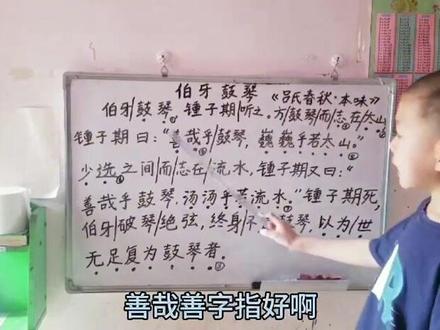 伯牙鼓琴 《吕氏春秋·本味》
伯牙/鼓琴,锺子期/听之。方/鼓琴/而/志在/太山,
锺子期曰:“善哉乎/鼓琴,巍巍乎若太山。”
少选之间/而/志在/流水,锺子期又曰:“
善哉乎鼓琴,汤汤乎若流水。”锺子期死,
伯牙/破琴/绝弦,终身/不鼓琴,以为/世
无足复为鼓琴者。
善哉善字指好啊